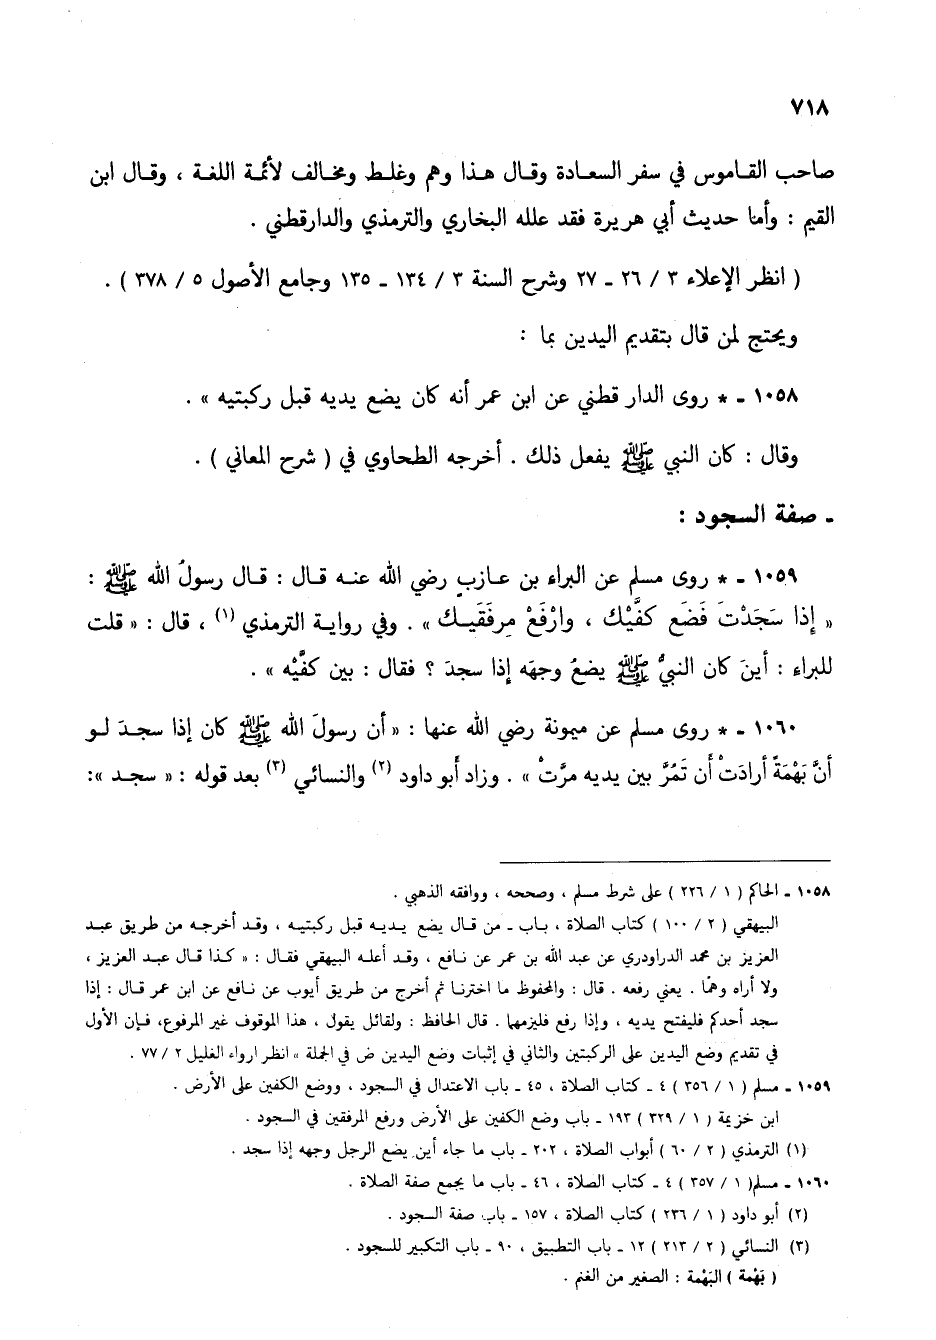 ٧١٨
صاحب القاموس في سفر السعادة وقال هذا وهم وغلط ومخالف لأئمة اللغة ، وقال ابن
القيم : وأما حديث أبي هريرة فقد علله البخاري والترمذي والدارقطني .
( انظر الإعلاء ٣ / ٢٦ ـ ٢٧ وشرح السنة ٣ / ١٣٤ ـ ١٣٥ وجامع الأصول ٥ / ٣٧٨ ) .
ويحتج لمن قال بتقديم اليدين بما :
١٠٥٨ ـ * روى الدار قطني عن ابن عمر أنه كان يضع يديه قبل ركبتيه » .
وقال : كان النبي ﷺ يفعل ذلك . أخرجه الطحاوي في ( شرح المعاني ) .
ـ صفة السجود :
١٠٥٩ ـ * روى مسلم عن البراء بن عازبٍ رضي الله عنه قال : قال رسولُ الله ﷺ :
« إِذا سَجَدْتَ فَضَع كفَّيْك ، وارْفَعْ مِرفَقَيك » . وفي رواية الترمذي (١) ، قال : « قلت
للبراء : أينَ كان النبيُّ ﷺ يضعُ وجهَه إذا سجدَ ؟ فقال : بين كفَّيْه » .
١٠٦٠ ـ * روى مسلم عن ميمونة رضي الله عنها : « أن رسولَ الله ﷺ كان إذا سجدَ لو
أنَّ بَهْمَةً أرادَتْ أَن تَمُرَّ بين يديه مرَّتْ » . وزاد أبو داود (٢) والنسائي (٣) بعد قوله : « سجد »:
١٠٥٨ ـ الحاكم ( ١ / ٢٢٦ ) على شرط مسلم ، وصححه ، ووافقه الذهبي .
البيهقي ( ٢ / ١٠٠ ) كتاب الصلاة ، باب ـ من قال يضع يديه قبل ركبتيه ، وقد أخرجه من طريق عبد
العزيز بن محمد الدراودري عن عبد الله بن عمر عن نافع ، وقد أعله البيهقي فقال : « كذا قال عبد العزيز ،
ولا أراه وهمًا . يعني رفعه . قال : والمحفوظ ما اخترنا ثم أخرج من طريق أيوب عن نافع عن ابن عمر قال : إذا
سجد أحدكم فليفتح يديه ، وإذا رفع فليزمها . قال الحافظ : ولقائل يقول ، هذا الموقوف غير المرفوع، فإن الأول
في تقديم وضع اليدين على الركبتين والثاني في إثبات وضع اليدين ض في الجملة » انظر ارواء الغليل ٢ / ٧٧ .
١٠٥٩ ـ مسلم ( ١ / ٣٥٦ ) ٤ ـ كتاب الصلاة ، ٤٥ ـ باب الاعتدال في السجود ، ووضع الكفين على الأرض .
ابن خزيمة ( ١ / ٣٢٩ ) ١٩٣ ـ باب وضع الكفين على الأرض ورفع المرفقين في السجود .
(١) الترمذي ( ٢ / ٦٠ ) أبواب الصلاة ، ٢٠٢ ـ باب ما جاء أين يضع الرجل وجهه إذا سجد .
١٠٦٠ ـ مسلم( ١ / ٣٥٧ ) ٤ ـ كتاب الصلاة ، ٤٦ ـ باب ما يجمع صفة الصلاة .
(٢) أبو داود ( ١ / ٢٣٦ ) كتاب الصلاة ، ١٥٧ ـ باب صفة السجود .
(٣) النسائي ( ٢ / ٢١٣ ) ١٢ ـ باب التطبيق ، ٩٠ ـ باب التكبير للسجود .
( بَهْمة ) البَهْمة : الصغير من الغنم .